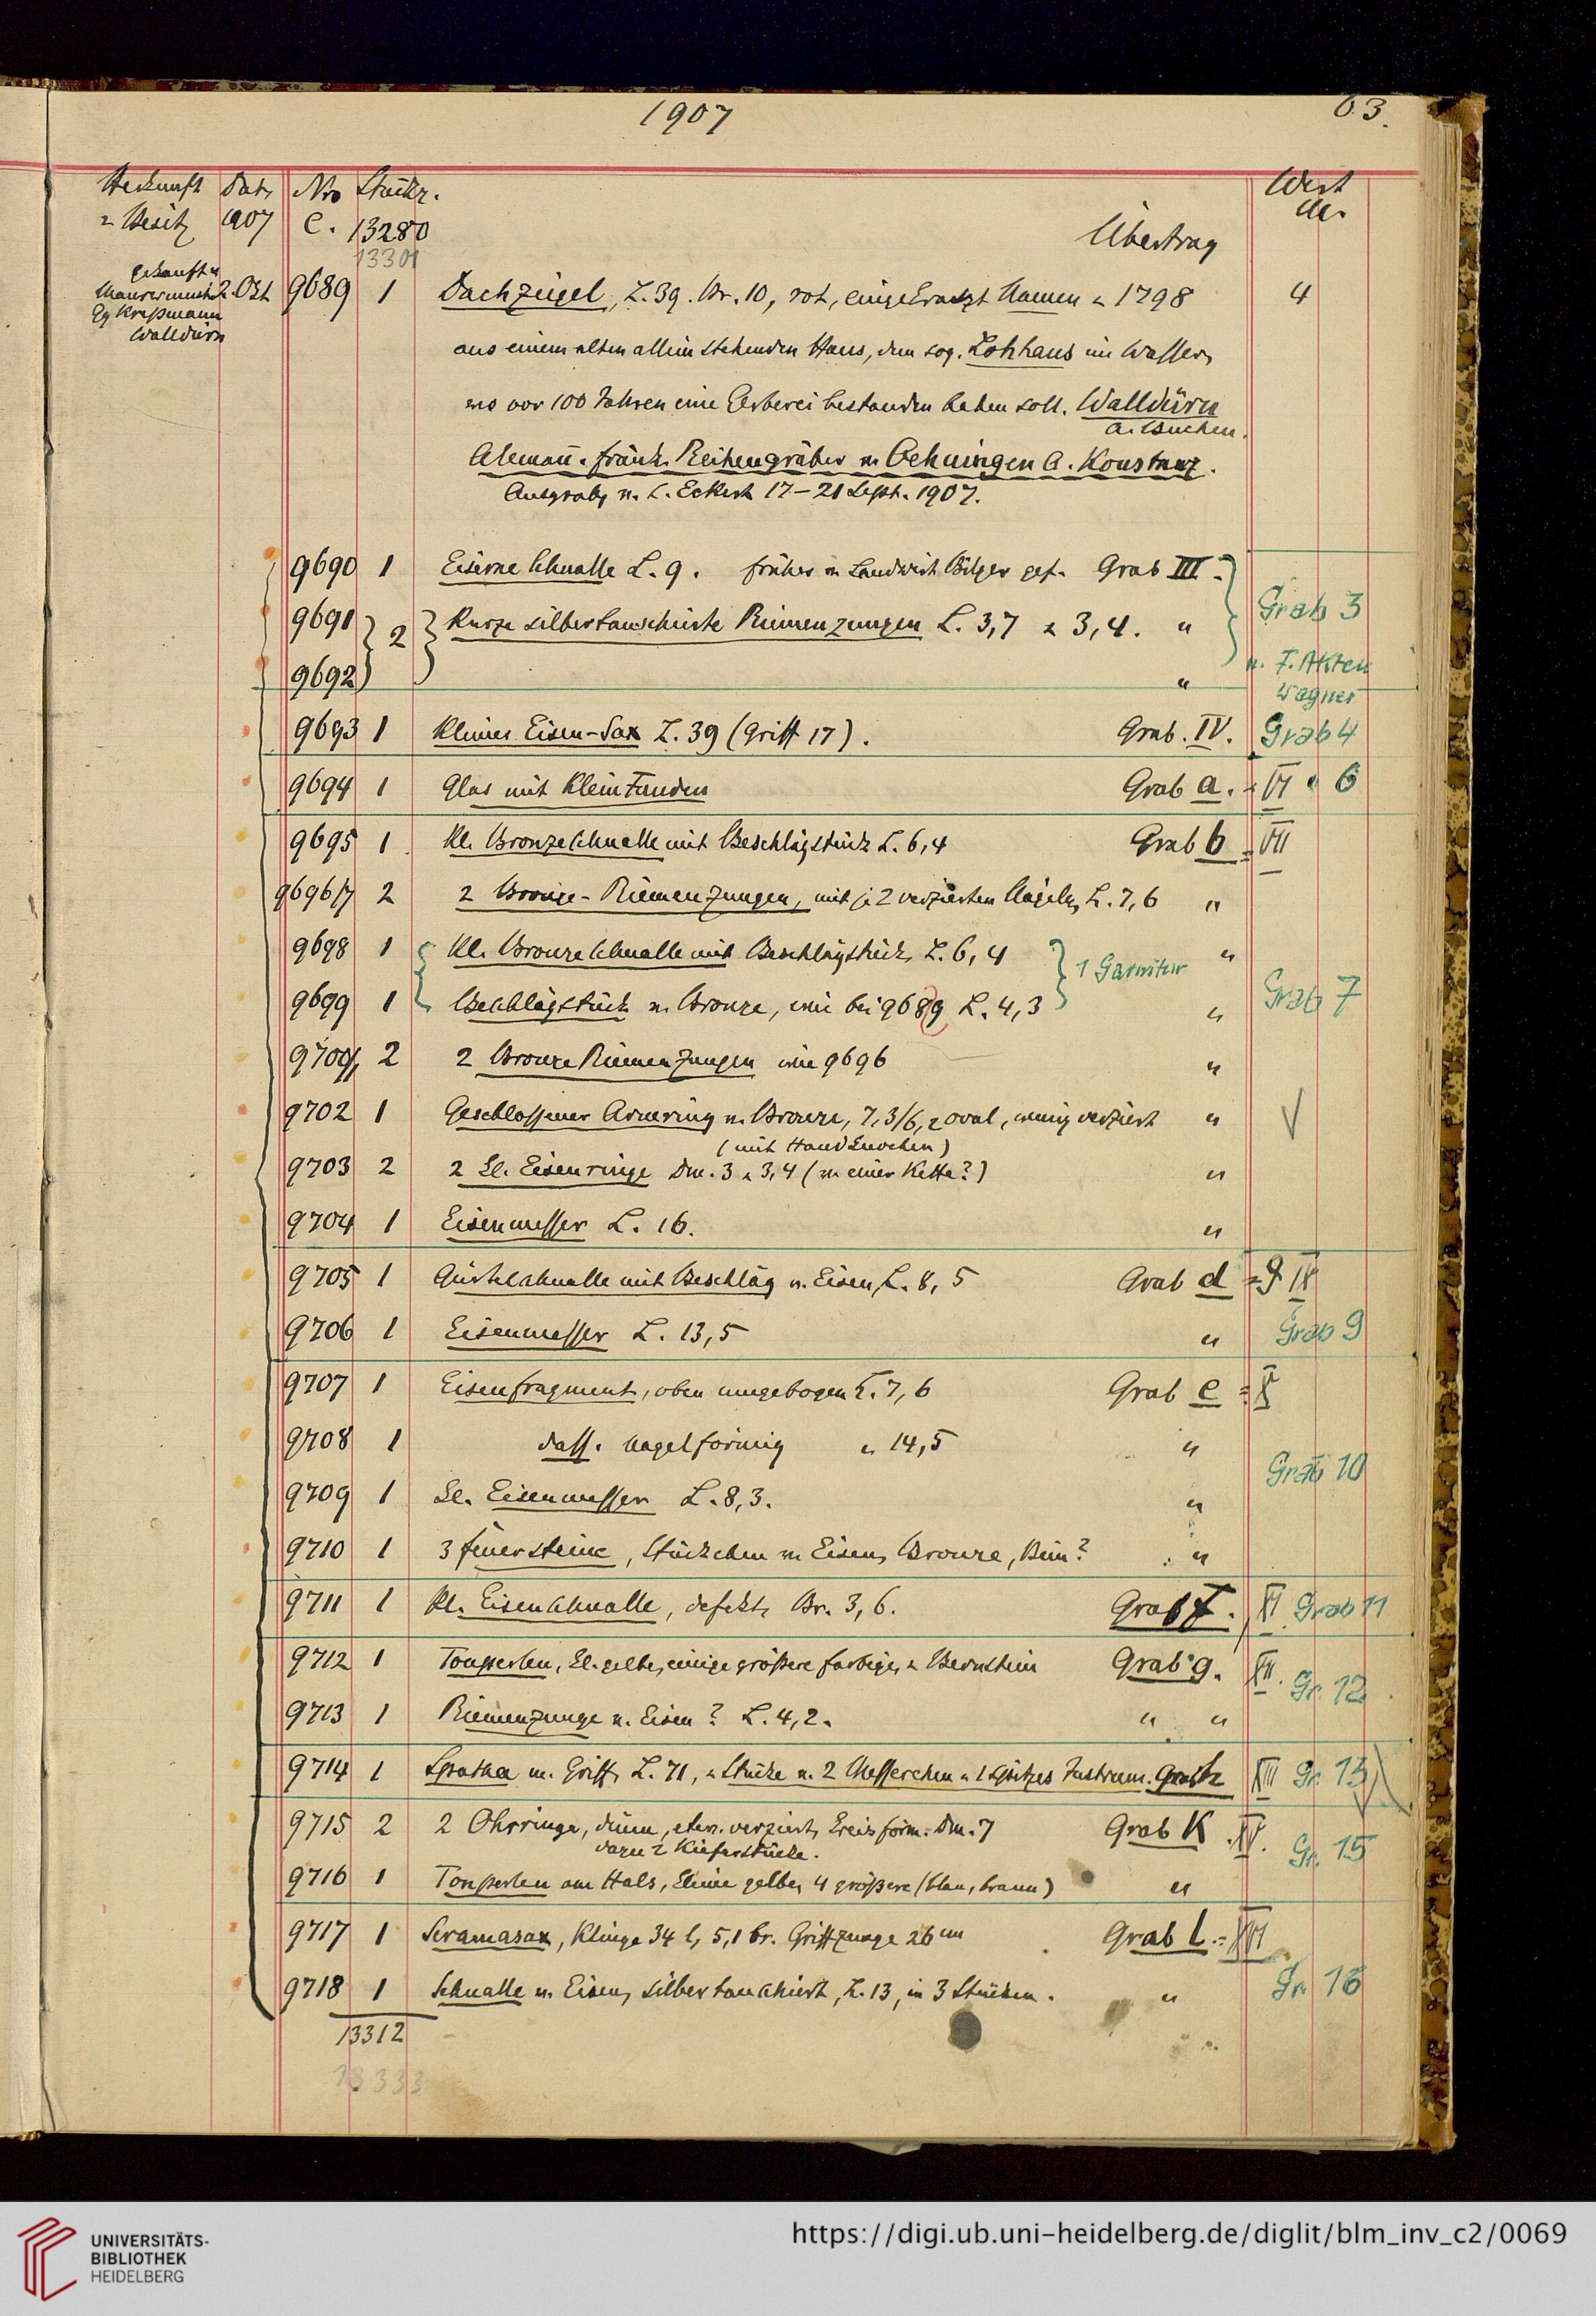 1907
63.
Herkunft Dat. Nro Stückz. Wert
u Besitz 1907 C. 13280 Übertrag M.
13301
gekauft v.
Maurermeister
Kreßmann
Walldürn
2. Okt 9689 1 Dachziegel, L. 39. Br. 10, rot, eingekratzt Namen u 1798 4
aus einem alten allein stehenden Haus, dem sog. Lohhaus im Wasser,
wo vor 100 Jahren eine Gerberei bestanden haben soll. Walldürn
A. Buchen.
Aleman. fränk. Reihengräber v. Oehningen A. Konstanz.
Ausgrabg v. E. Eckert 17–21 Sept. 1907.
9690 1 Eiserne Schnalle L. 9. früher v. Landwirt Bilger gef. Grab III.
9691 } 2 } Kurze silbertauschierte Riemenzungen L. 3,7 u 3,4. " Grab 3
9692 " n. F. Akten
Wagner
9693 1 Kleiner Eisen-Sax L. 39 (Griff 17). Grab. IV. Grab 4
9694 1 Glas mit Kleinfunden Grab a. = VI 6
9695 1 Kl. Bronzeschnalle mit Beschlägstück L. 6,4 Grab b = VII
9696/7 2 2 Bronze-Riemenzungen, mit je 2 verzierten Nägeln, L. 7,6 "
9698 1 { Kl. Bronzeschnalle mit Beschlägstück, L. 6,4 } 1 Garnitur "
9699 1 Beschlägstück v. Bronze, wie bei 9689 L. 4,3 " Grab 7
9700/1 2 2 Bronze Riemenzungen wie 9696 "
9702 1 Geschlossener Armring v. Bronze, 7,3/6,2 oval, wenig verziert "
(mit Handknochen)
9703 2 2 kl. Eisenringe Dm. 3 u 3,4 (v. einer Kette?) "
9704 1 Eisenmesser L. 16. "
9705 1 Gürtelschnalle mit Beschläg v. Eisen, L. 8,5 Grab d = 9 IX
9706 1 Eisenmesser L. 13,5 " Grab 9
9707 1 Eisenfragment, oben umgebogen L. 7,6 Grab e = X
9708 1 dass. nagelförmig " 14,5 "
Grab 10
9709 1 kl. Eisenmesser L. 8,3. "
9710 1 3 Feuersteine, Stückchen v. Eisen, Bronze, Bein? "
9711 1 Kl. Eisenschnalle, defekt, Br. 3,6. Grab f. XI Grab 11
9712 1 Tonperlen, kl. gelbe, einige größere farbige, u Bernstein Grab g. XII. Gr. 12
9713 1 Riemenzunge v. Eisen? L. 4,2. " "
9714 1 Spatha m. Griff, L. 71, u Stücke v. 2 Messerchen u 1 spitzes Instrum. Grab h XIII Gr. 13
9715 2 2 Ohrringe, dünn, etw. verziert, kreisförm. Dm. 7 Grab K XV. Gr. 15
dazu 2 Kieferstücke.
9716 1 Tonperlen am Hals, kleine gelbe, 4 größere (blau, braun) "
9717 1 Scramasax, Klinge 34 l, 5,1 br. Griffzunge 26 cm Grab l. = XVI
9718 1 Schnalle v. Eisen, silbertauschiert, L. 13, in 3 Stücken. " Gr. 16
13312
13333
UNIVERSITÄTS-
BIBLIOTHEK
HEIDELBERG
https://digi.ub.uni-heidelberg.de/diglit/blm_inv_c2/0069